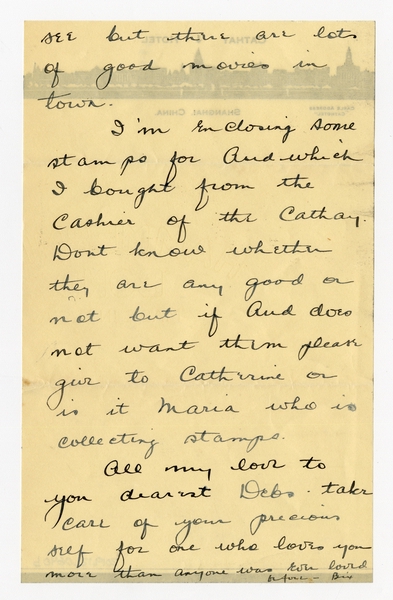 see but there are lots
of good movies in
town.
I'm enclosing some
stamps for Aud which
I bought from the
Cashier of the Cathay.
Dont know whether
they are any good or
not but if Aud does
not want them please
give to Catherine or
is it Maria who is
collecting stamps.
All my love to
you dearest Debs. take
care of your precious
self for one who loves you
more than anyone was ever loved
before - Bix